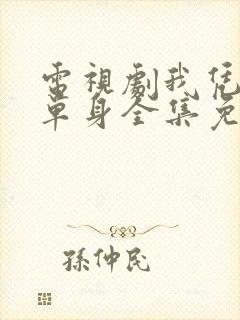 電視劇我凭
單身全集免
孫仲民